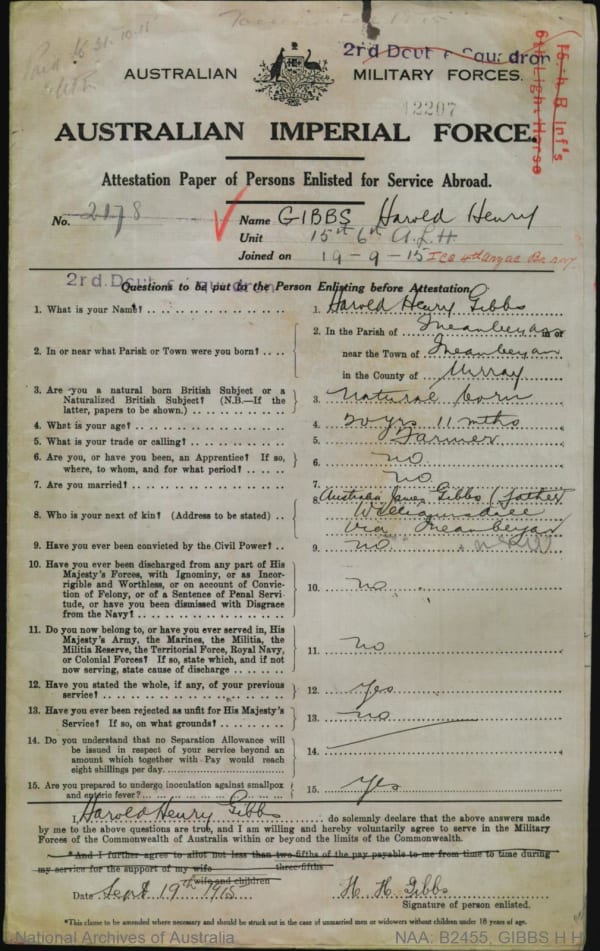 Paid to 31.10.15
2nd Dcut e Squadron
AUSTRALIAN MILITARY FORCES.
16th B Inf's
6th Light Horse
12207
AUSTRALIAN IMPERIAL FORCE.
Attestation Paper of Persons Enlisted for Service Abroad.
No. 2178
Name GIBBS Harold Henry
Unit 15th 6th A.L.H.
Joined on 19-9-15
2nd. Dcut e Squadron
Questions to be put to the Person Enlisting before Attestation.
1. What is your Name? 1. Harold Henry Gibbs
2. In or near what Parish or Town were you born? 2. In the Parish of Queanbeyan in or
near the Town of Queanbeyan
in the County of Murray
3. Are you a natural born British Subject or a
Naturalized British Subject? (N.B.—If the
latter, papers to be shown.) 3. Natural born
4. What is your age? 4. 20 yrs 11 mths
5. What is your trade or calling? 5. Farmer
6. Are you, or have you been, an Apprentice? If so,
where, to whom, and for what period? 6. no
7. Are you married? 7. no
8. Who is your next of kin? (Address to be stated) 8. Australia James Gibbs (father)
Williamsdale
via Queanbeyan
N.S.W
9. Have you ever been convicted by the Civil Power? 9. no
10. Have you ever been discharged from any part of His
Majesty's Forces, with Ignominy, or as Incor-
rigible and Worthless, or on account of Convic-
tion of Felony, or of a Sentence of Penal Servi-
tude, or have you been dismissed with Disgrace
from the Navy? 10. no
11. Do you now belong to, or have you ever served in, His
Majesty's Army, the Marines, the Militia, the
Militia Reserve, the Territorial Force, Royal Navy,
or Colonial Forces? If so, state which, and if not
now serving, state cause of discharge 11. no
12. Have you stated the whole, if any, of your previous
service? 12. yes
13. Have you ever been rejected as unfit for His Majesty's
Service? If so, on what grounds? 13. no
14. Do you understand that no Separation Allowance will
be issued in respect of your service beyond an
amount which together with Pay would reach
eight shillings per day. 14.
15. Are you prepared to undergo inoculation against smallpox
and enteric fever? 15. yes
I, Harold Henry Gibbs do solemnly declare that the above answers made
by me to the above questions are true, and I am willing and hereby voluntarily agree to serve in the Military
Forces of the Commonwealth of Australia within or beyond the limits of the Commonwealth.
*And I further agree to allot not less than two-fifths of the pay payable to me from time to time during
three-fifths
my service for the support of my wife
wife and children
Date Sept 19th 1915 H. H. Gibbs
Signature of person enlisted.
*This clause to be amended where necessary and should be struck out in the case of unmarried men or widowers without children under 18 years of age.
National Archives of Australia NAA: B2455, GIBBS H H